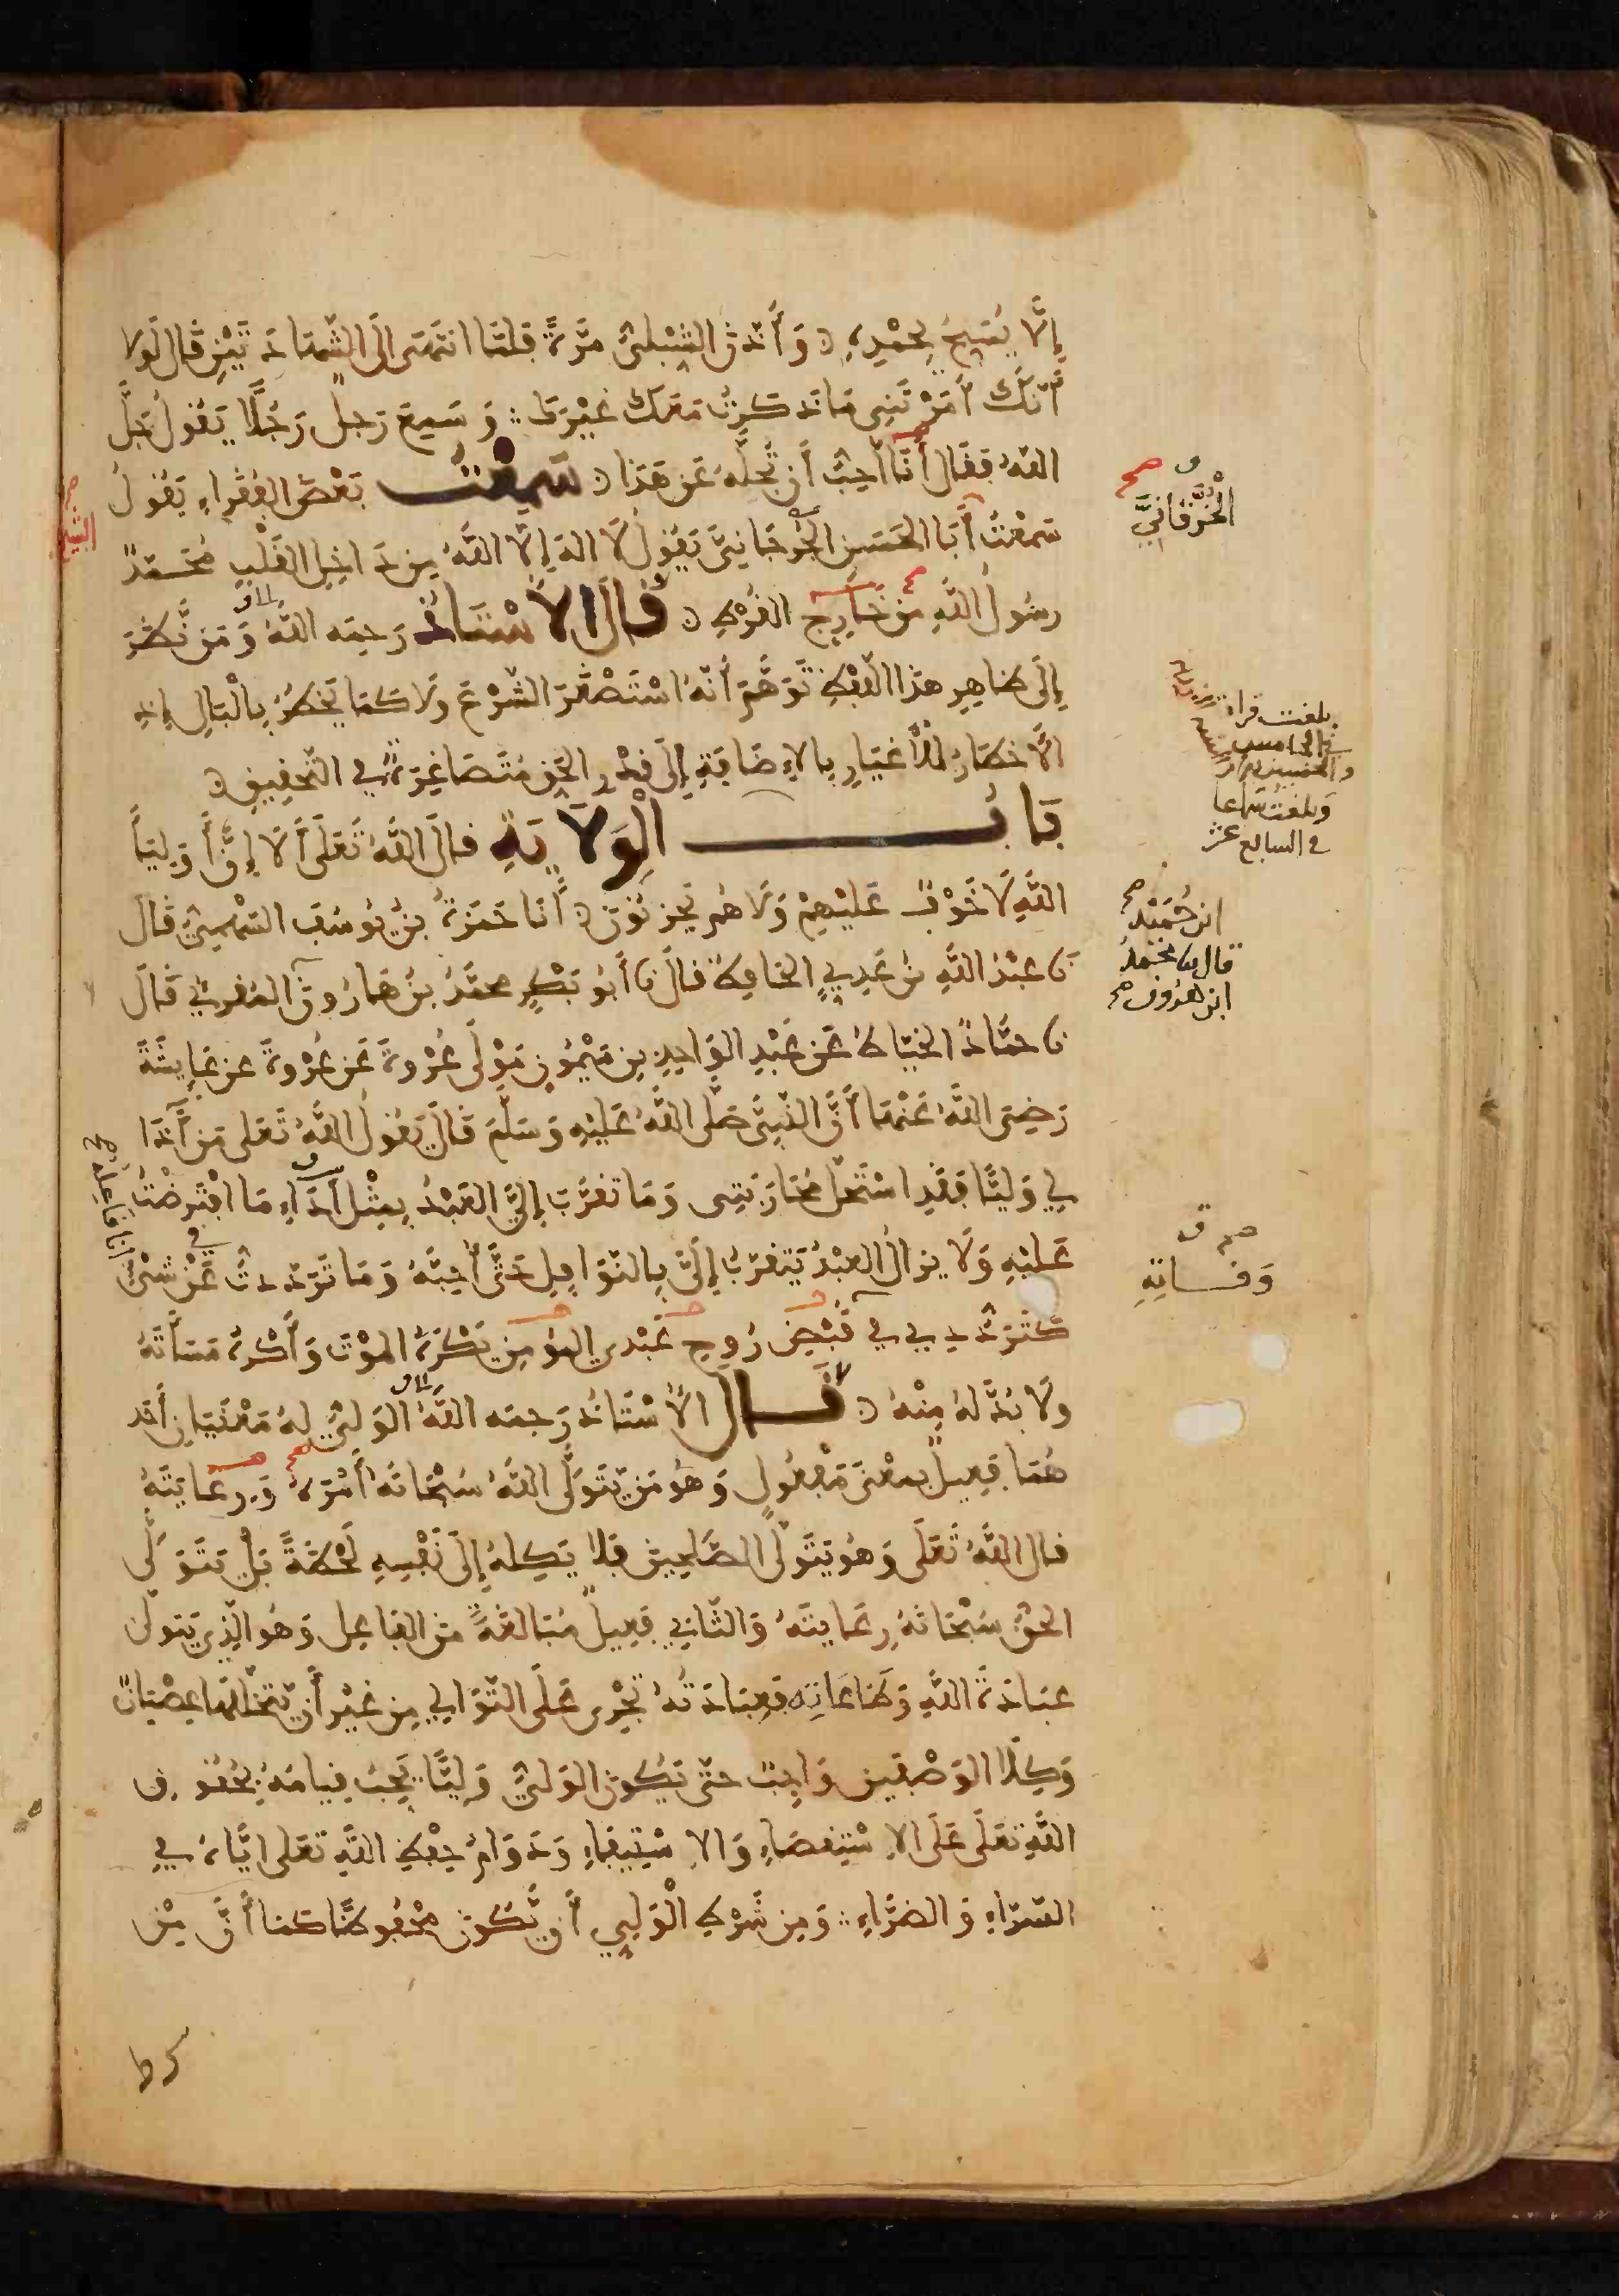 إِلَّا يُسَبِّحُ بِحَمْدِهِ وَأَذَّنَ الشِّبْلِيُّ مَرَّةً فَلَمَّا انْتَهَى إِلَى الشَّهَادَتَيْنِ قَالَ لَوْلَا
أَنَّكَ أَمَرْتَنِي مَا ذَكَرْتُ مَعَكَ غَيْرَكَ وَسَمِعَ رَجُلٌ رَجُلًا يَقُولُ جَلَّ
اللَّهُ فَقَالَ أَنَا أُحِبُّ أَنْ تُجِلَّهُ عَنْ هَذَا سَمِعْتُ بَعْضَ الْفُقَرَاءِ يَقُولُ
سَمِعْتُ أَبَا الْحَسَنِ الْجُرْجَانِيَّ يَقُولُ لَا إِلَهَ إِلَّا اللَّهُ مِنْ دَاخِلِ الْقَلْبِ مُحَمَّدٌ
رَسُولُ اللَّهِ مِنْ خَارِجِ الْقُرْطِ قَالَ الْأُسْتَاذُ رَحِمَهُ اللَّهُ وَمَنْ نَظَرَ
إِلَى ظَاهِرِ هَذَا اللَّفْظِ تَوَهَّمَ أَنَّهُ اسْتَصْغَرَ الشَّرْعَ وَلَا كَمَا يَخْطُرُ بِالْبَالِ إِذِ
الْأَخْطَارُ لِلْأَغْيَارِ بِالْإِضَافَةِ إِلَى قَدْرِ الْحَقِّ مُتَصَاغِرَةٌ فِي التَّحْقِيقِ
بَابُ الْوَلَايَةِ قَالَ اللَّهُ تَعَلَى أَلَا إِنَّ أَوْلِيَاءَ
اللَّهِ لَا خَوْفٌ عَلَيْهِمْ وَلَا هُمْ يَحْزَنُونَ أَنَا حَمْزَةُ بْنُ يُوسُفَ السَّهْمِيُّ قَالَ
نَا عَبْدُ اللَّهِ بْنُ عَدِيٍّ الْحَافِظُ قَالَ نَا أَبُو بَكْرٍ مُحَمَّدُ بْنُ هَارُونَ الْمُقْرِئُ قَالَ
نَا حَمَّادٌ الْخَيَّاطُ عَنْ عَبْدِ الْوَاحِدِ بْنِ مَيْمُونٍ مَوْلَى عُرْوَةَ عَنْ عُرْوَةَ عَنْ عَائِشَةَ
رَضِيَ اللَّهُ عَنْهَا أَنَّ النَّبِيَّ صَلَّى اللَّهُ عَلَيْهِ وَسَلَّمَ قَالَ يَقُولُ اللَّهُ تَعَلَى مَنْ آذَى
لِي وَلِيًّا فَقَدِ اسْتَحَلَّ مُحَارَبَتِي وَمَا تَقَرَّبَ إِلَيَّ الْعَبْدُ بِمِثْلِ أَدَاءِ مَا افْتَرَضْتُ
عَلَيْهِ وَلَا يَزَالُ الْعَبْدُ يَتَقَرَّبُ إِلَيَّ بِالنَّوَافِلِ حَتَّى أُحِبَّهُ وَمَا تَرَدَّدْتُ عَنْ شَيْءٍ
كَتَرَدُّدِي فِي قَبْضِ رُوحِ عَبْدِي الْمُؤْمِنِ يَكْرَهُ الْمَوْتَ وَأَكْرَهُ مَسَاءَتَهُ
وَلَا بُدَّ لَهُ مِنْهُ قَالَ الْأُسْتَاذُ رَحِمَهُ اللَّهُ الْوَلِيُّ لَهُ مَعْنَيَانِ أَحَدُ
هُمَا فَعِيلٌ بِمَعْنَى مَفْعُولٍ وَهُوَ مَنْ يَتَوَلَّى اللَّهُ سُبْحَانَهُ أَمْرَهُ وَرِعَايَتَهُ
قَالَ اللَّهُ تَعَلَى وَهُوَ يَتَوَلَّى الصَّلِحِينَ فَلَا يَكِلُهُ إِلَى نَفْسِهِ لَحْظَةً بَلْ يَتَوَلَّى
الْحَقُّ سُبْحَانَهُ رِعَايَتَهُ وَالثَّانِي فَعِيلٌ مُبَالَغَةً مِنَ الْفَاعِلِ وَهُوَ الَّذِي يَتَوَلَّى
عِبَادَةَ اللَّهِ وَطَاعَاتِهِ فَعِبَادَتُهُ تَجْرِي عَلَى التَّوَالِي مِنْ غَيْرِ أَنْ يَتَخَلَّلَهَا عِصْيَانٌ
وَكِلَا الْوَصْفَيْنِ وَاجِبٌ حَتَّى يَكُونَ الْوَلِيُّ وَلِيًّا يَجِبُ قِيَامُهُ بِحُقُوقِ
اللَّهِ تَعَلَى عَلَى الِاسْتِقْصَاءِ وَالِاسْتِيفَاءِ وَدَوَامُ حِفْظِ اللَّهِ تَعَلَى إِيَّاهُ فِي
السَّرَّاءِ وَالضَّرَّاءِ وَمِنْ شَرْطِ الْوَلِيِّ أَنْ يَكُونَ مَحْفُوظًا كَمَا أَنَّ مِنْ
صح
الْخَرَّقَانِيَّ
بلغت قراءة
في الخامس
وبلغت سماعا
في السابع عشر
ابن مُحَمَّدٍ
قال نا محمد
ابن هرون صح
أنا فاعله صح